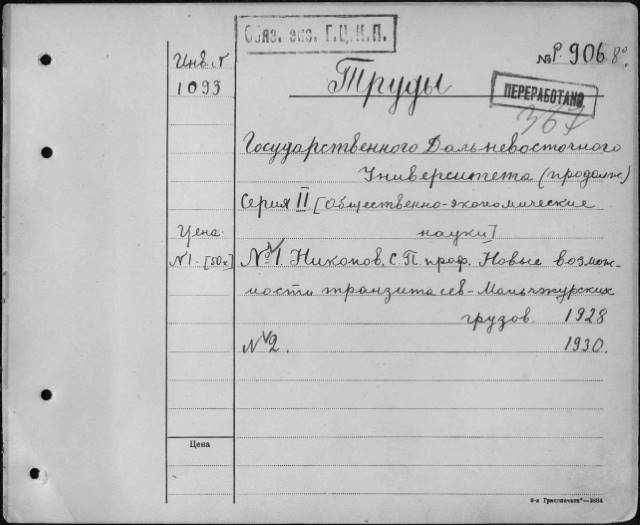 Обяз. экз. Г.Ц.К.П.
Инв. №
1093
№ Р. 906. 8°
Труды
ПЕРЕРАБОТАНО
367
Государственного Дальневосточного
Университета (продолж.)
Серия II [Общественно-экономические
науки]
Цена
№1. [50к]
№1. Никонов, С.П. проф. Новые возмож-
ности транзита сев-Маньчжурских
грузов. 1928
№2. 1930.
Цена